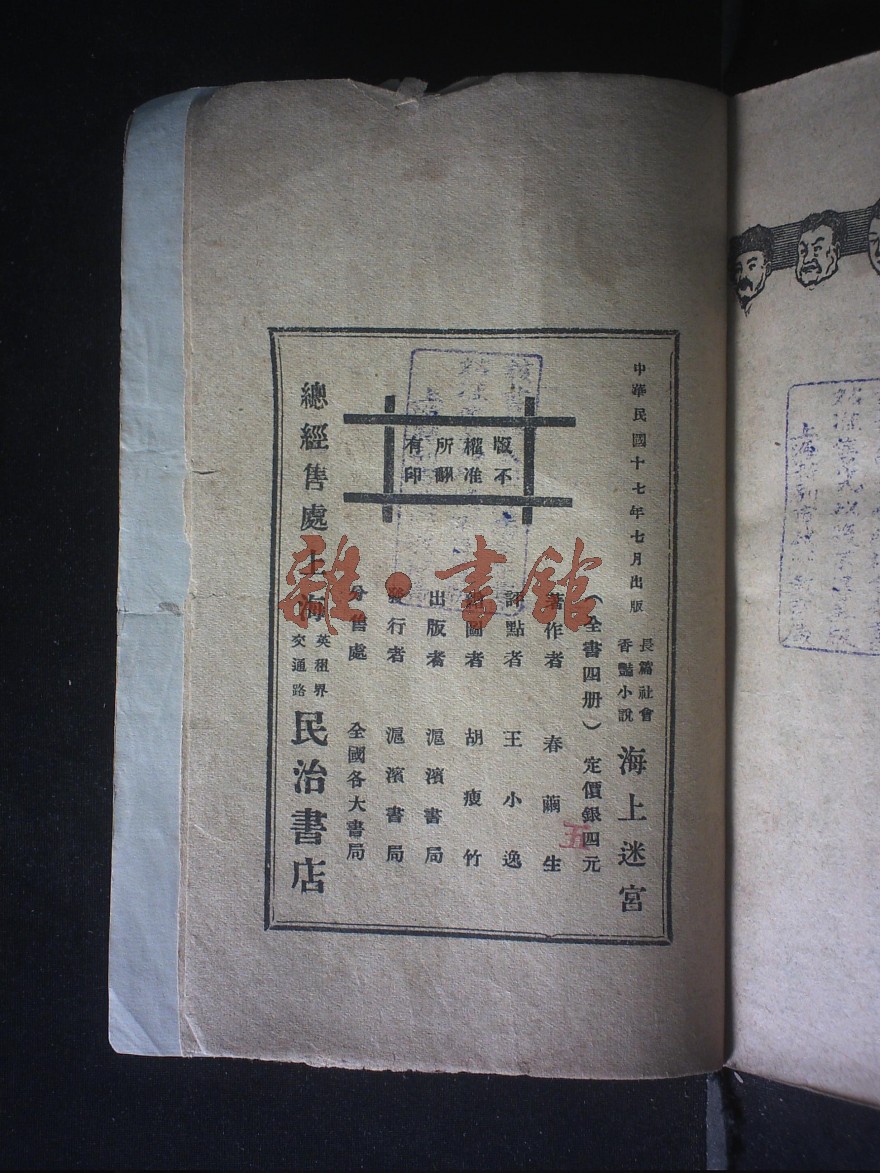 中華民國十七年七月出版
長篇社會
香豔小說
海上迷宮
（全書四册）定價銀四元
五
著作者 春繭生
評點者 王小逸
繪圖者 胡瘦竹
出版者 滬濱書局
發行者 滬濱書局
分售處 全國各大書局
總經售處上海
英租界
交通路
民治書店
版權所有
不准翻印
雜·書館